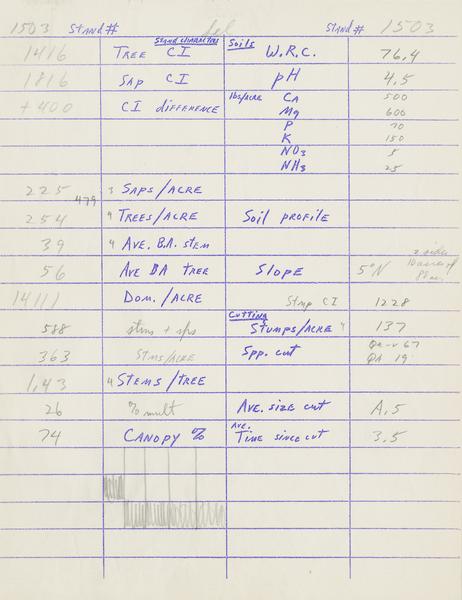 1503 Stand # Stand # 1503
Stand Characters Soils
1416 Tree CI W.R.C. 76,4
1816 Sap CI pH 4,5
+ 400 CI difference lbs/acre Ca 500
Mg 600
P 70
K 150
NO3 5
NH3 25
225 3 Saps/acre
479
254 4 Trees/acre Soil profile
39 4 Ave. B.A. stem
56 Ave BA tree Slope 5°N
14111 Dom. /acre Stmp CI 1228
Cutting
588 stms + sps Stumps/acre 4 137
363 Stms/acre Spp. cut Qa-v 67
QA 19
1,43 4 Stems/tree
26 % mult Ave. size cut A,5
74 Canopy % Ave. Time since cut 3,5